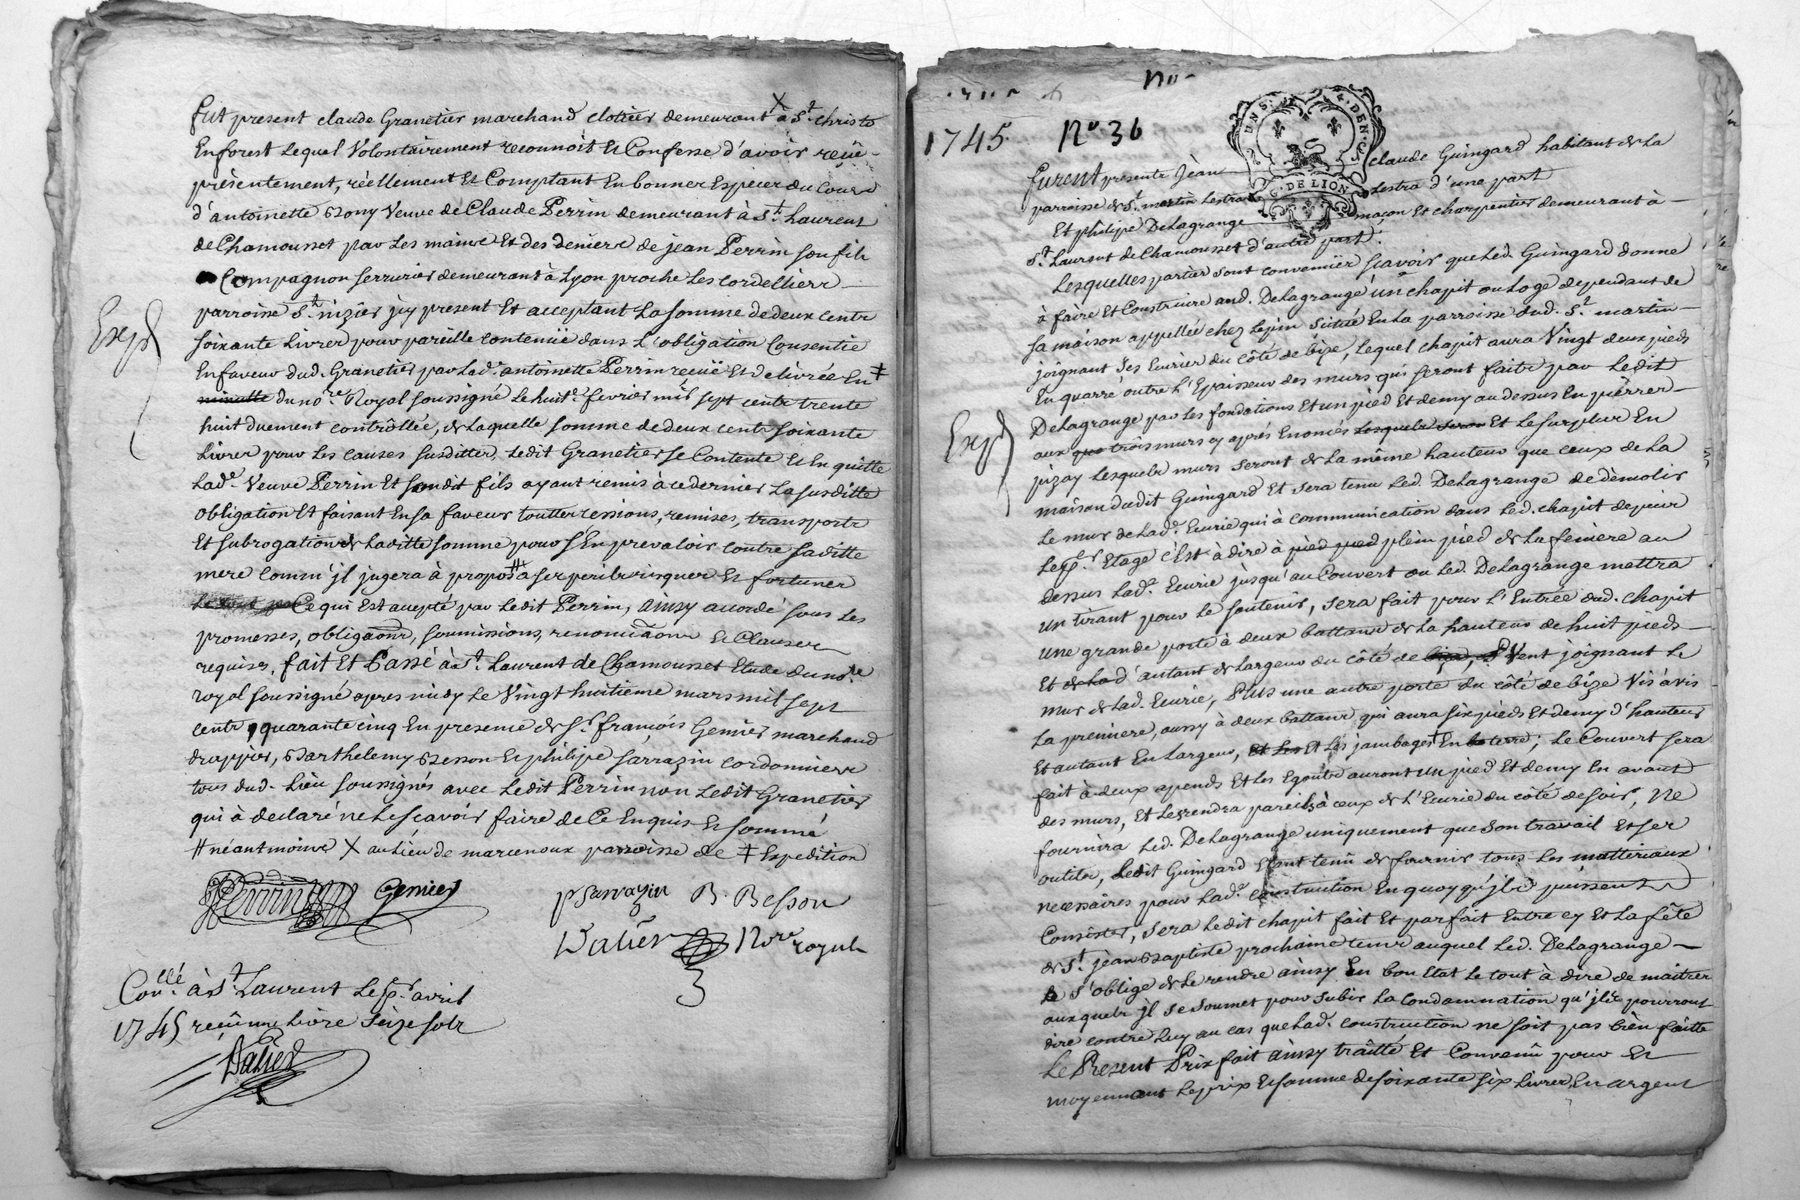 fut present claude Granetier marchand clotrier demeurant X à St. christo
En forest Lequel Volontairement reconnoit Et Confesse d'avoir reçüe
présentement, réellement Et Comptant En bonnes Especes du Cours
d'antoinette Bony Veuve de Claude Perrin demeurant à St. Laurent
de Chamousset par Les mains Et des deniers de jean Perrin son fils
Compagnon serrurier demeurant à Lyon proche Les cordelliers
parroisse St. nizier jcy present Et acceptant La somme de deux cents
soixante Livres pour pareille contenüe dans L'obligation Consentie
En faveur dud. Granetier par Lad. antoinette Perrin reçüe Et delivrée En ‡
minutte du nore. Royal soussigné Le huite. fevrier mil sept cents trente
huit duement controllée, de Laquelle somme de deux cents soixante
Livres pour Les causes susdittes, Ledit Granetier se Contente Et En quitte
Lade. Veuve Perrin Et sondit fils ayant remis a ce dernier La susditte
obligation Et faisant En sa faveur touttes cessions, remises, transports
Et subrogations de Laditte somme pour s'En prevaloir contre saditte
mere comm'jl jugera à propos # a ses perils risques Et fortunes
Ce qui Est accepté par Ledit Perrin, ainsy accordé sous Les
promesses, obligaons, soumissions, renonciaons Et Clauses
requises, fait Et Passé à St. Laurent de Chamousset Etude du nore.
royal soussigné apres midy Le Vingt huitieme mars mil sept
cents quarante cinq En presence de Sr. françois Genier marchand
drappier, Barthelemy Besson Et philipe sarrazin cordonniers
tous dud. Lieu soussignés avec Ledit Perrin non Ledit Granetier
qui à declaré ne Le sçavoir faire de Ce Enquis Et sommé
# néantmoins X au Lieu de marcenoux parroisse de ‡ Expedition
Perrin Genier
p Sarrazin B. Besson
Dalier Nore royal
Conllé. à St. Laurent Le pr. avril
1745 reçu une Livre seize sols
Dalier
Expé
No
1745. No 36
UN S. 4. DEN. G. DE LION
furent presents Jean claude Guingard habitant de La
parroisse de St. martin Lestra Lestra d'une part
Et philipe DeLagrange maçon Et charpentier demeurant à
St. Laurent de Chamousset d'autre part.
Lesquelles parties sont convenües sçavoir que Led. Guingard donne
à faire Et Construire aud. DeLagrange un chapit ou Loge dependant de
sa maison appellée chez Lepin Située En La parroisse dud. St. martin
joignant ses Ecuries du côté de bize, Lequel chapit aura Vingt deux pieds
En quarré outre L'Epaisseur des murs qui seront faits par Ledit
DeLagrange par Les fondations Et un pied Et demy au dessus En pierres
aux que trois murs cy aprés Enoncés Lesquels seron Et Le surplus En
pizay Lesquels murs seront de La même hauteur que ceux de La
maison dudit Guingard Et sera tenu Led. DeLagrange de démolir
Le mur de Lad. Ecurie qui à communication dans Led. chapit depuis
Le pr. Etage c'Est à dire à pied pied plein pied de La feniere au
dessus Lad. Ecurie jusqu'au Couvert ou Led. DeLagrange mettra
un tirant pour Le soutenir, sera fait pour L'Entrée dud. chapit
une grande porte à deux battans de La hauteur de huit pieds
Et de La d'autant de Largeur du côté de bize, Vent joignant Le
mur de Lad. Ecurie, Plus une autre porte du côté de bize Vis à vis
La premiere, aussy à deux battans qui aura six pieds Et demy d'hauteur
Et autant En Largeur, Et Les Et Les jambages En terre, Le Couvert sera
fait à deux apends Et Les Egouts auront un pied Et demy En avant
des murs, Et Les rendra pareils à ceux de L'Ecurie du côté de soir, Ne
fournira Led. DeLagrange uniquement que son travail Et ses
outils, Ledit Guingard Etant tenû de fournir tous Les mattériaux
necessaires pour Lad. construction En quoy qu'jls puissent
Consister, sera Ledit chapit fait Et parfait Entre cy Et La fête
de St. jean Baptiste prochaine tems auquel Led. DeLagrange
s'oblige de Le rendre ainsy En bon Etat Le tout à dire de maitres
auxquels jl se soumet pour subir La Condamnation qu'jls pourront
dire contre Luy au cas que Lad. construction ne soit pas bien faitte
Le Present Prix fait ainsy traitté Et Convenû pour Et
moyennant Le prix Et somme de soixante six Livres, En argent
Expé